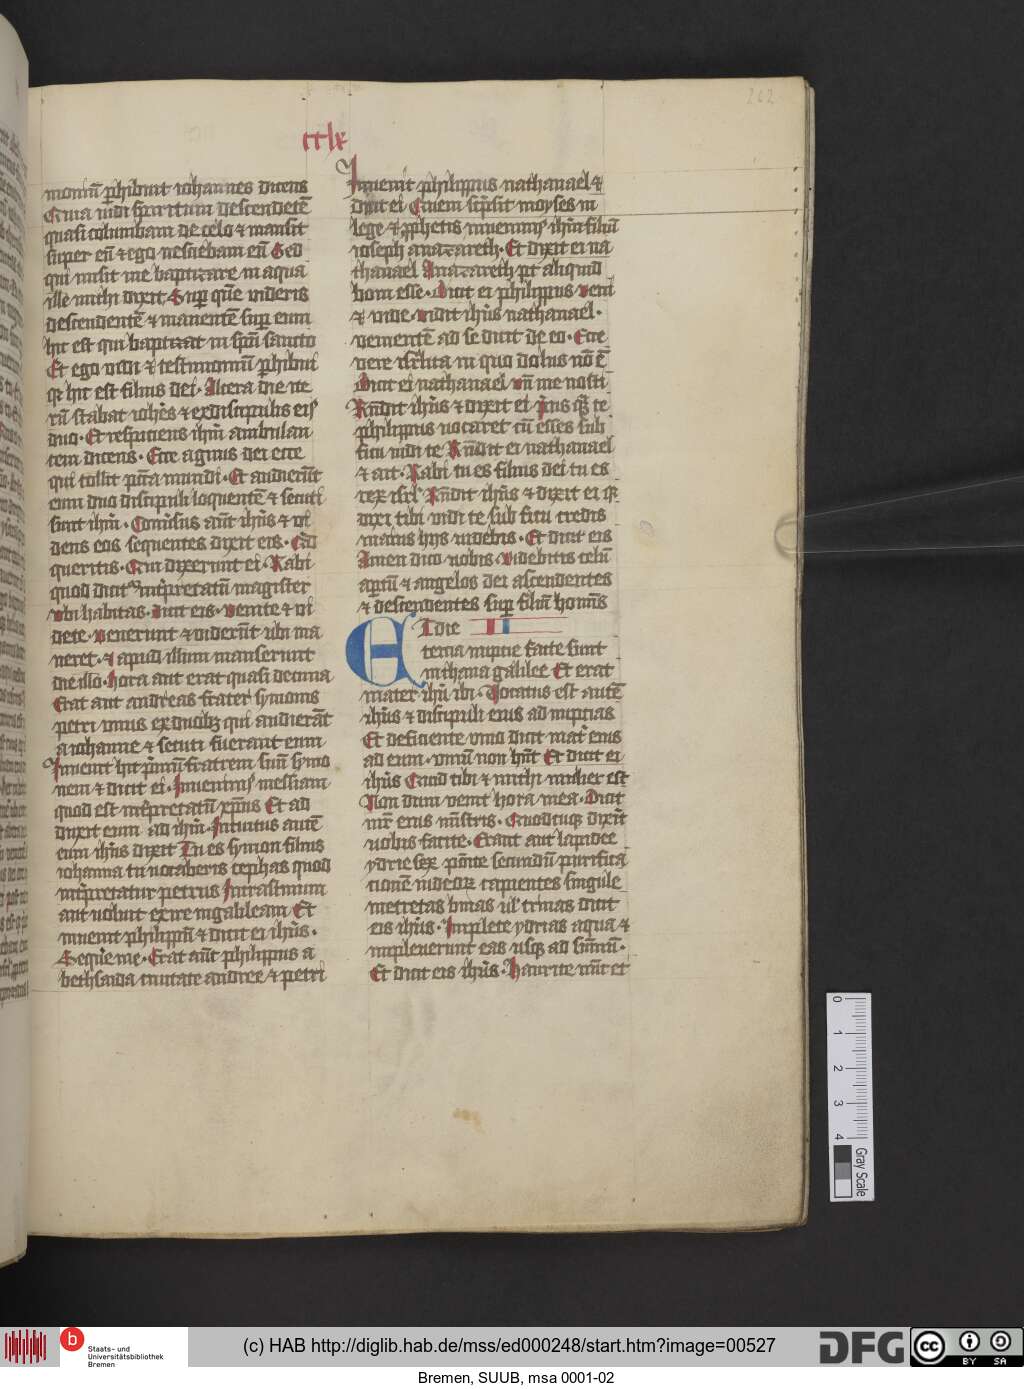 262
cclx
moniu͞ ꝑhibuit iohannes dicens
Quia uidi spiritum descendete͞
quasi columbam de celo ⁊ mansit
super eu͞ ⁊ ego nesciebam eu͞ Sed
qui misit me baptizare in aqua
ille michi dixit Suꝑ que͞ videris
descendente͞ ⁊ manente͞ suꝑ eum
hic est qui baptizat in spu͞ sancto
Et ego vidi ⁊ testimoniu͞ ꝑhibui
qꝛ hic est filius dei. Altera die ite
ru͞ stabat ioh͞es ⁊ ex discipulis eiꝰ
duo. Et respiciens ihm͞ ambulan
tem dicens. Ecce agnus dei ecce
qui tollit pcc͞a mundi. Et audieru͞t
eum duo discipuli loquente͞ ⁊ secuti
sunt ihm͞. Conu͛sus aut͞ ihus͞ ⁊ vi
dens eos sequentes dixit eis. Qd͞
queritis. Qui dixerunt ei. Rabi
quod dicit͛ int͛pretatu͞ magister
vbi habitas. Dicit eis. venite ⁊ vi
dete. venerunt ⁊ videru͞t ubi ma
neret. ⁊ apud illum manserunt
die illo. hora aut erat quasi decima
Erat aut andreas frater symonis
petri vnus ex duobꝫ qui audiera͞t
a iohanne ⁊ secuti fuerant eum
Inuenit hic pͥmu͞ fratrem suu͞ symo
nem ⁊ dicit ei. Inuenimꝰ messiam
quod est int͛pretatu͞ xpu͞s Et ad
duxit eum ad ihm͞. Intuitus aute͞
eum ihus͞ dixit Tu es symon filius
iohanna tu vocaberis cephas quod
int͛pretatur petrus In crastinum
aut uoluit exire in galileam Et
inuenit philippu͞ ⁊ dicit ei ihus͞.
Sequere me. Erat aut͞ philippus a
bethsaida ciuitate andree ⁊ petri
Inuenit philippus nathanael ⁊
dixit ei Quem sc͛psit moyses in
lege ⁊ ꝓphetis inuenimꝰ ihm͞ filiu͞
ioseph a nazareth. Et dixit ei na
thanael A nazareth pt͞ aliquid
boni esse. Dicit ei philippus veni
⁊ vide. vidit ihus͞ nathanael.
veniente͞ ad se dicit de eo. Ecce
vere isrl͞ita in quo dolus no͞ e͞
Dicit ei nathanael vn͞ me nosti
Rn͞dit ihus͞ ⁊ dixit ei pͥus qꝫ te
philippus vocaret cu͞ esses sub
ficu vidi te Rn͞dit ei nathanael
⁊ ait. Rabi tu es filius dei tu es
rex isrl͞ Rn͞dit ihus͞ ⁊ dixit ei qꝛ
dixi tibi vidi te sub ficu credis
maius hijs videbis. Et dicit eis
Amen dico vobis. videbitis celu͞
aꝑtu͞ ⁊ angelos dei ascendentes
⁊ descendentes suꝑ filiu͞ homi͞s
II
Et die
tercia nuptie facte sunt
in chana galilee Et erat
mater ihu͞ ibi. Vocatus est aute͞
ihus͞ ⁊ discipuli eius ad nuptias
Et deficiente vino dicit mat͛ eius
ad eum. vinu͞ non hn͞t Et dicit ei
ihus͞ Quid tibi ⁊ michi mulier est
Non dum venit hora mea. Dicit
mr͞ eius mi͞stris. Quodcuqꝫ dixe͛it
uobis facite. Erant aut lapidee
ydrie sex po͞ite secundu͞ purifica
cione͞ iudeoꝝ capientes singule
metretas binas ul͛ trinas dicit
eis ihus͞. Implete ydrias aqua ⁊
impleuerunt eas usqꝫ ad su͞mu͞.
Et dicit eis ihus͞. haurite nu͞c et
0
1
2
3
4
Gray Scale
b
Staats- und
Universitätsbibliothek
Bremen
(c) HAB http://diglib.hab.de/mss/ed000248/start.htm?image=00527
DFG
cc
BY SA
Bremen, SUUB, msa 0001-02